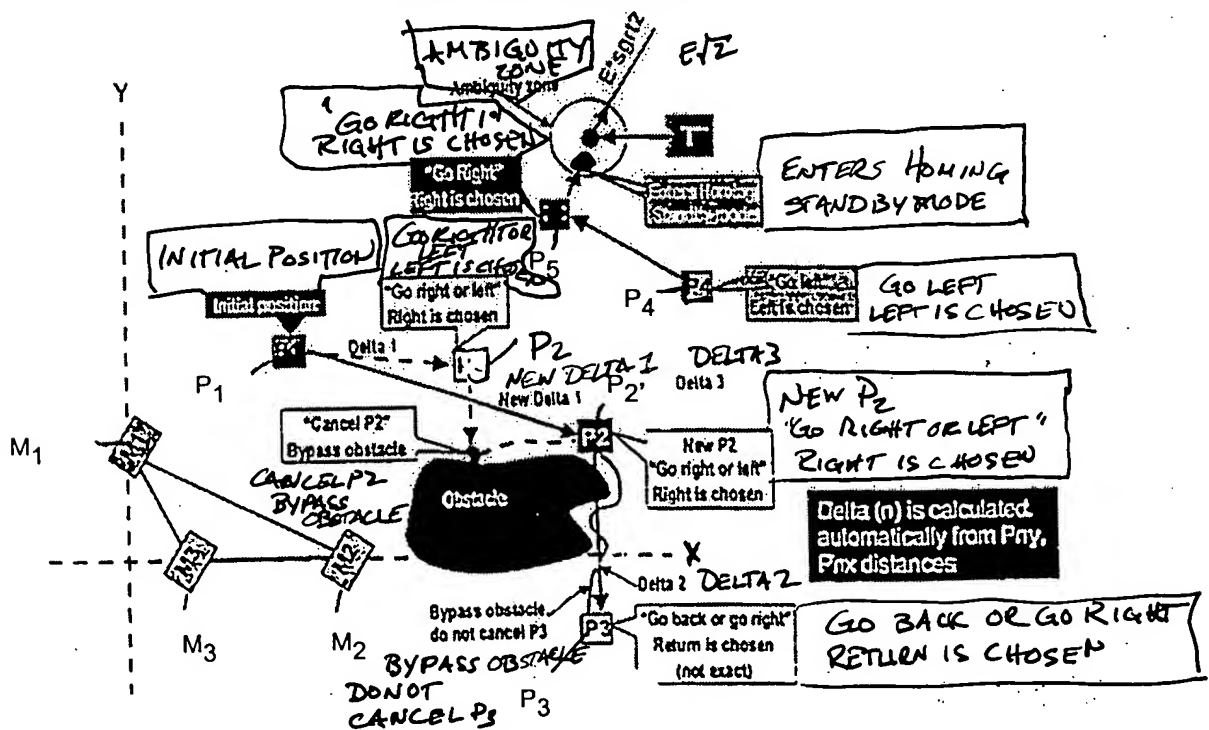 AMBIGUITY
ZONE
Ambiguity zone
E*sqrt2
E√2
Y
"GO RIGHT"
RIGHT IS CHOSEN
"Go Right"
Right is chosen
T
Enters Homing
Standby mode
ENTERS HOMING
STANDBY MODE
INITIAL POSITION
GO RIGHT OR
LEFT
LEFT IS CHOSEN
P5
Initial position
"Go right or left"
Right is chosen
P4
P4
"Go left"
Left is chosen
GO LEFT
LEFT IS CHOSEN
P1
Delta 1
P2
P1
NEW DELTA 1
New Delta 1
P2'
DELTA3
Delta 3
NEW P2
"GO RIGHT OR LEFT"
RIGHT IS CHOSEN
"Cancel P2"
Bypass obstacle
P2
New P2
"Go right or left"
Right is chosen
M1
CANCEL P2
BYPASS
OBSTACLE
Obstacle
Delta (n) is calculated
automatically from Pny,
Pnx distances
M3
M2
X
Delta 2
DELTA2
Bypass obstacle
do not cancel P3
P3
"Go back or go right"
Return is chosen
(not exact)
GO BACK OR GO RIGHT
RETURN IS CHOSEN
M3
M2
BYPASS OBSTACLE
DO NOT
CANCEL P3
P3